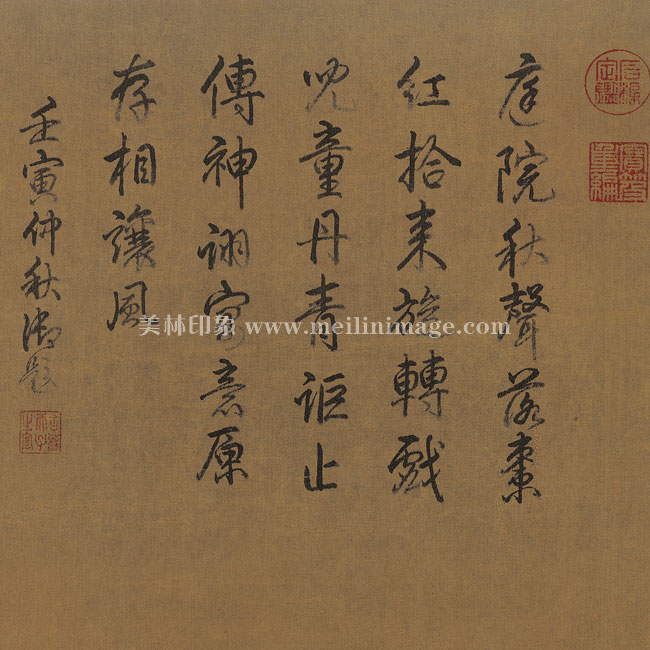 庭院秋聲落棗
紅拾来旋轉戲
児童丹青詎止
傳神詡寓意原
存相讓風
壬寅仲秋御題
美林印象 www.meilinimage.com